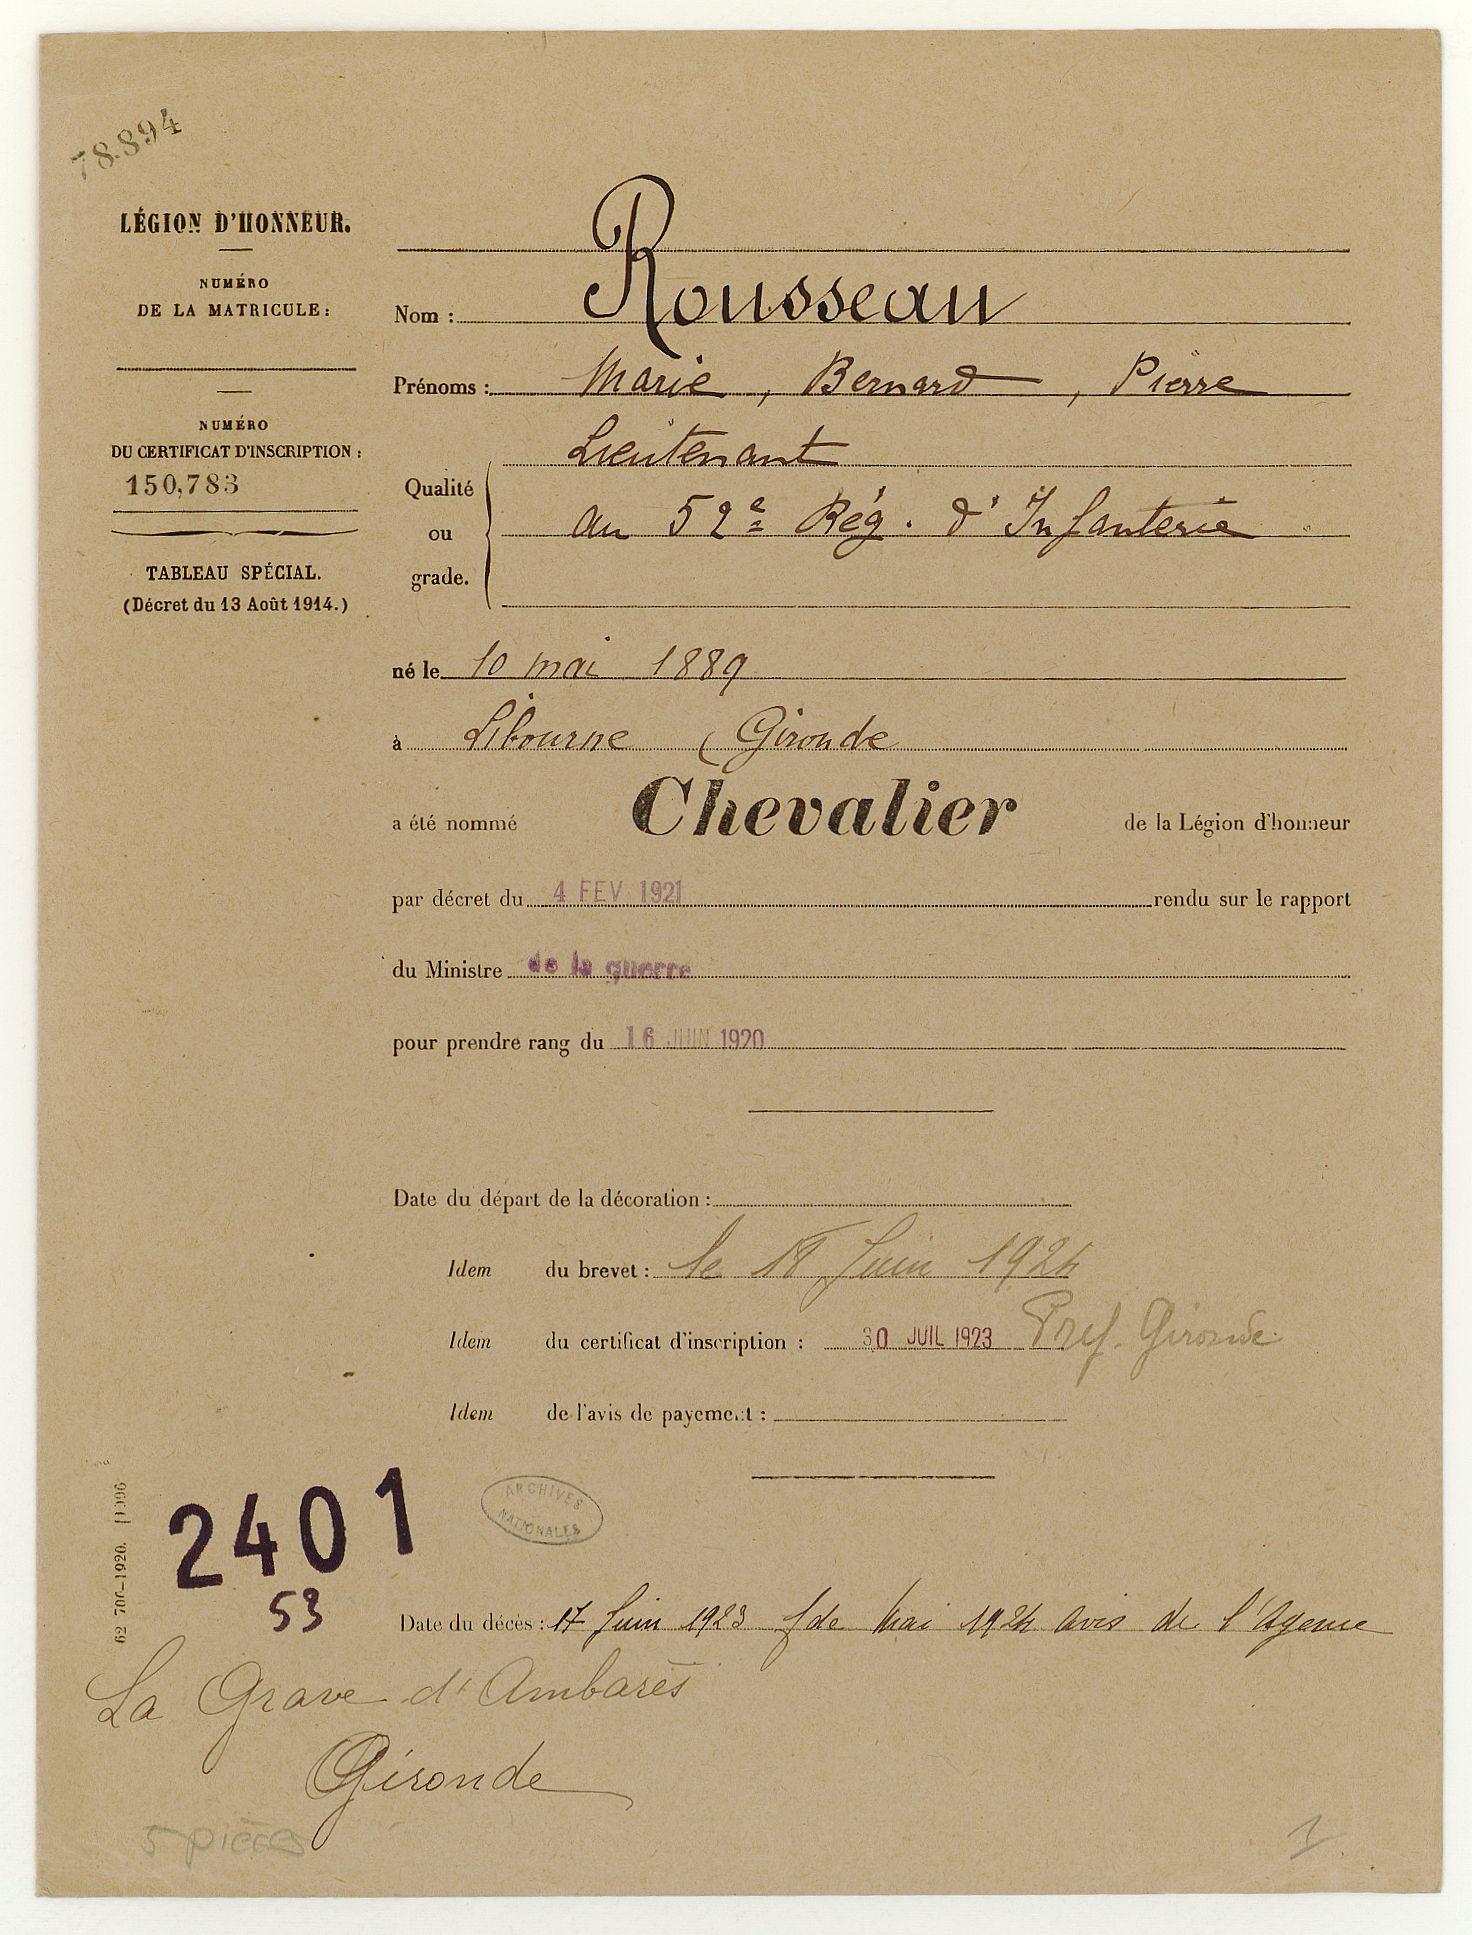 78.894
LÉGION D'HONNEUR.
NUMÉRO
DE LA MATRICULE:
NUMÉRO
DU CERTIFICAT D'INSCRIPTION :
150,783
TABLEAU SPÉCIAL.
(Décret du 13 Août 1914.)
Nom : Rousseau
Prénoms : Marie, Bernard, Pierre
Qualité ou grade. Lieutenant
au 52e Rég. d'Infanterie
né le 10 mai 1889
à Libourne (Gironde
a été nommé Chevalier de la Légion d'honneur
par décret du 4 FEV 1921 rendu sur le rapport
du Ministre de la guerre
pour prendre rang du 16 JUIN 1920
Date du départ de la décoration :
Idem du brevet : le 18 Juin 1924
Idem du certificat d'inscription : 30 JUIL 1923 Pref. Gironde
Idem de l'avis de payement :
ARCHIVES
NATIONALES
2401
53
62 700-1920.
Date du décès : 17 Juin 1923 mai 1924 avis de l'Agence
La Grave d'Ambarès
Gironde
5 pièces
1